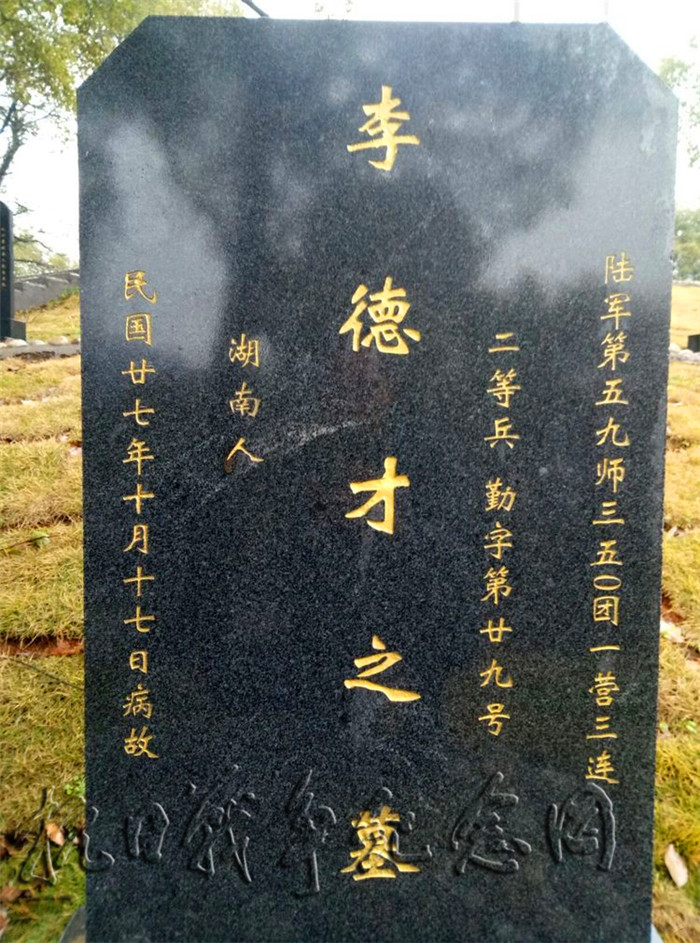 陆军第五九师三五〇团一营三连
二等兵 勤字第廿九号
李德才之墓
湖南人
民国廿七年十月十七日病故
抗日战争纪念网